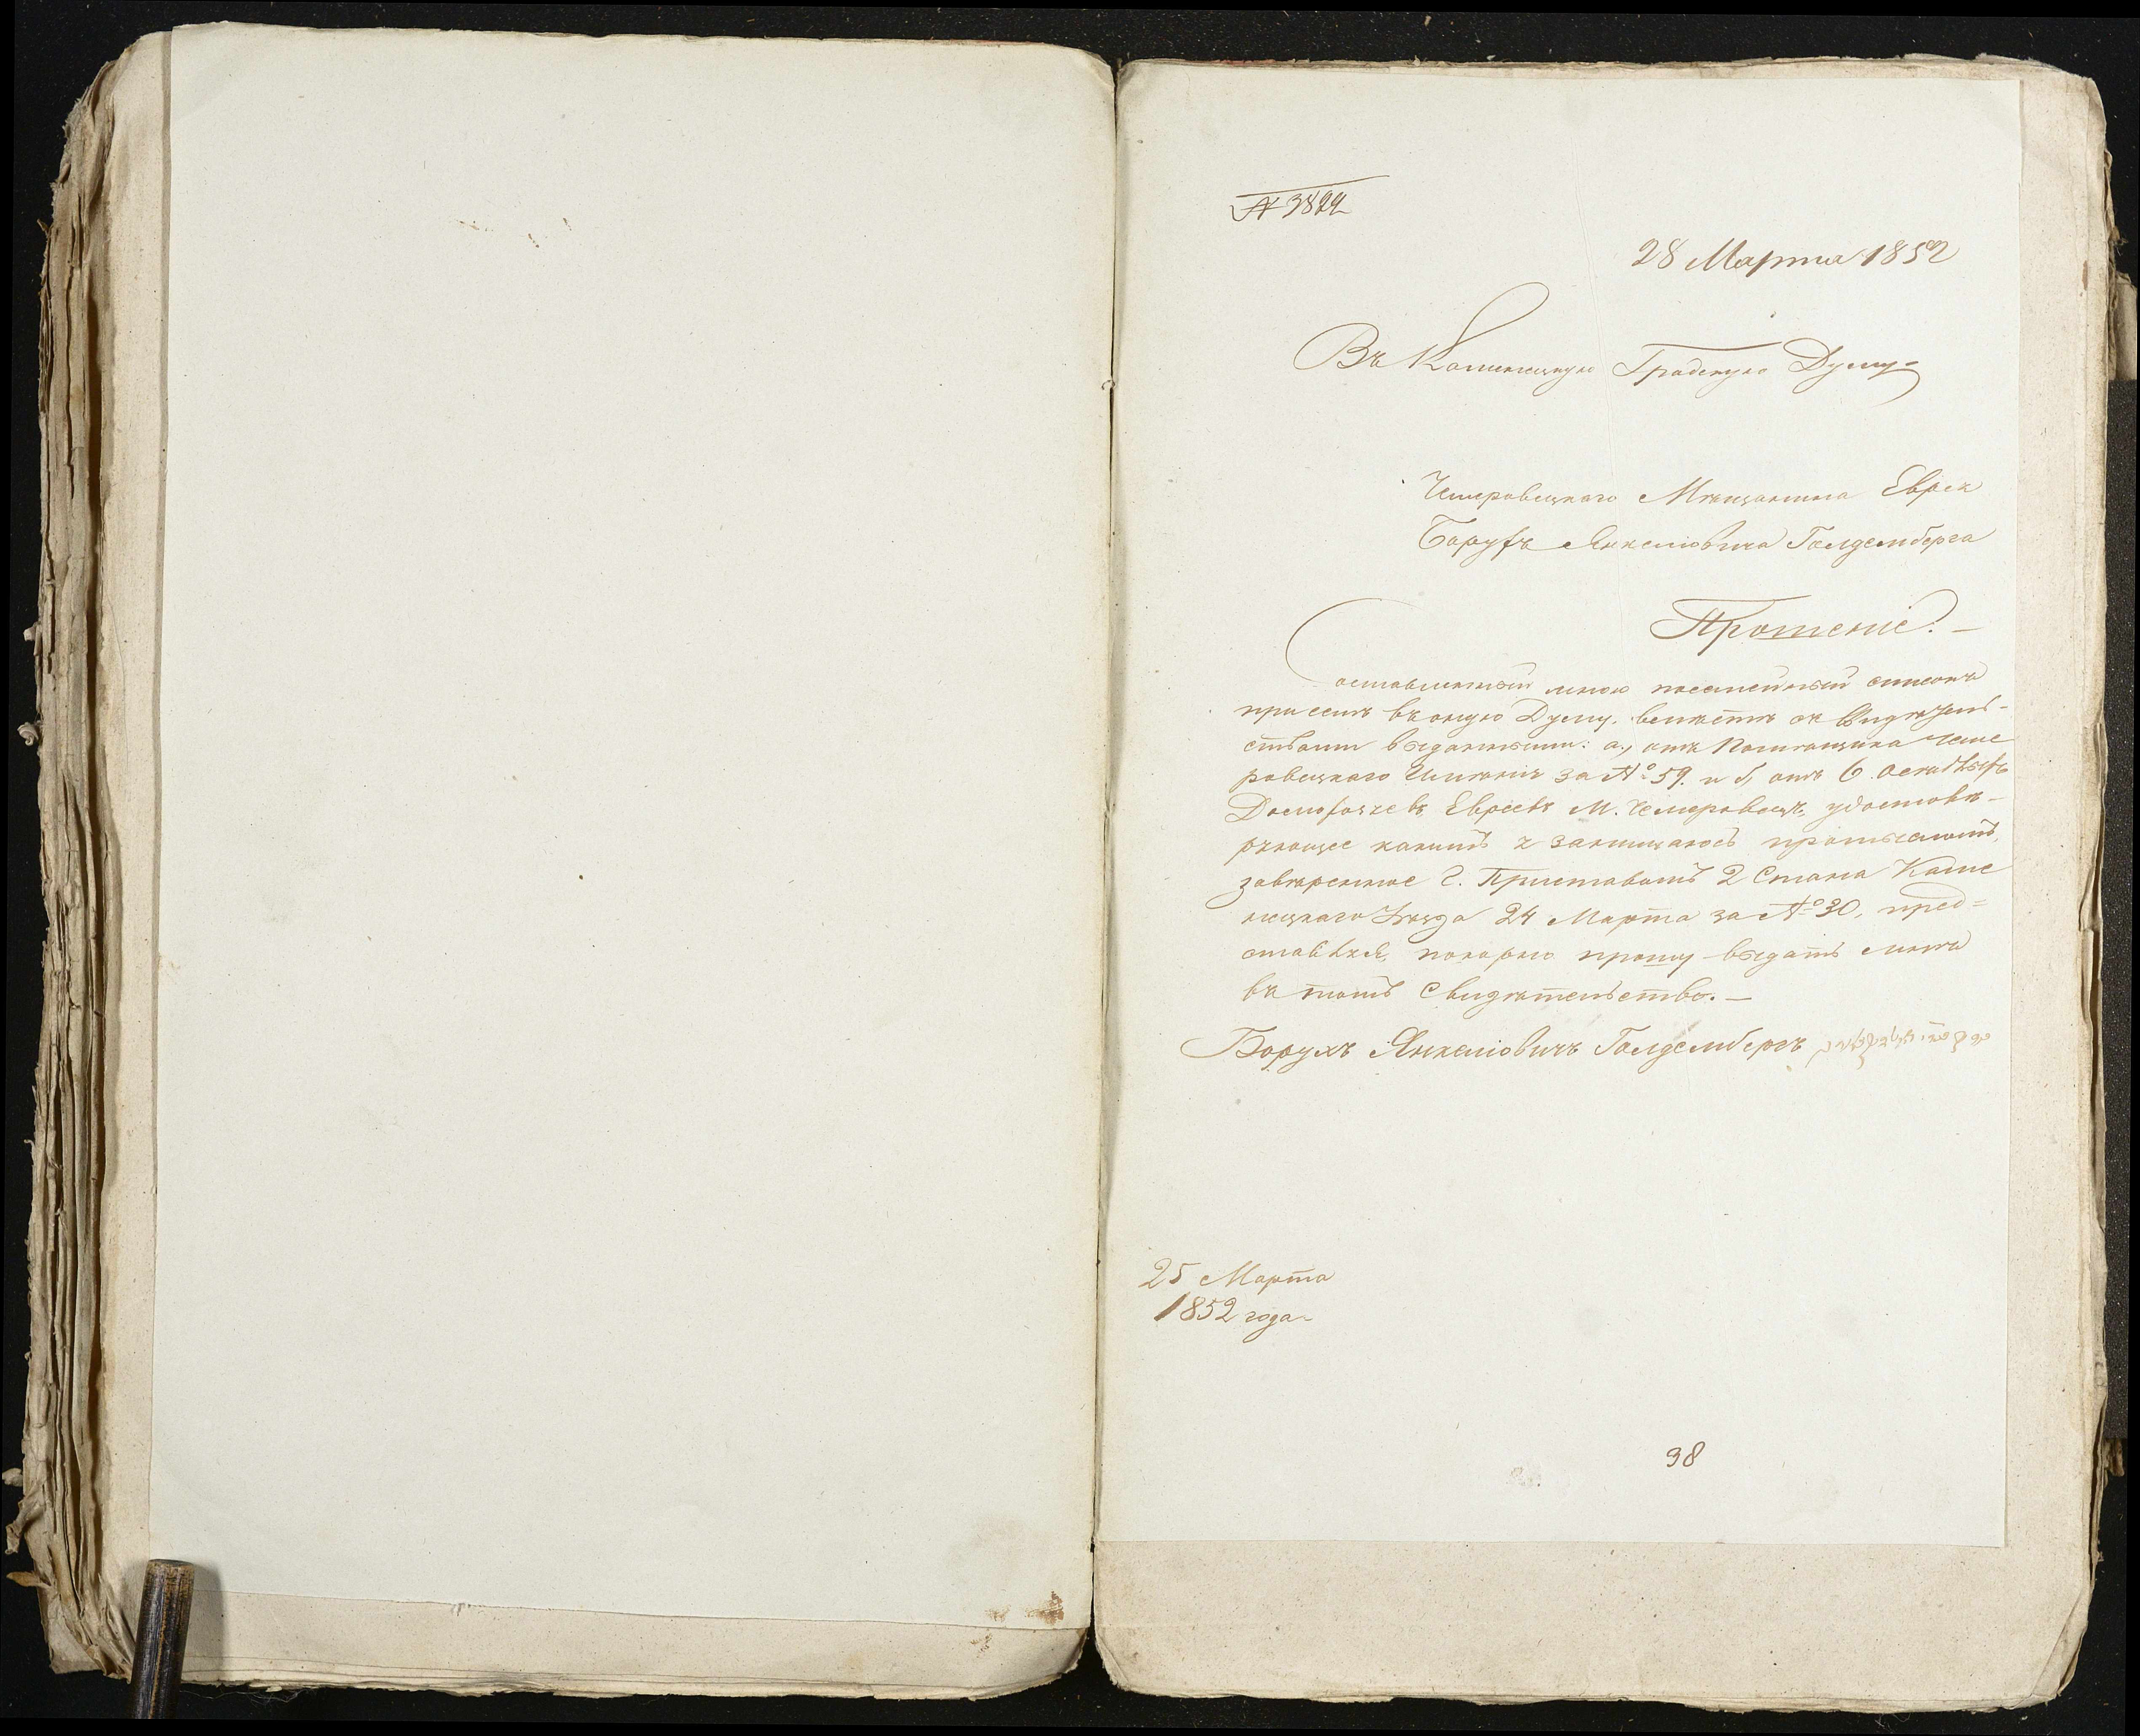 № 3822
28 Марта 1852
Въ Каменецкую Градскую Думу
Чемеровецкаго Мѣщанина Еврея
Борухъ Янкеліовича Голдемберга
Прошеніе. —
Составленный мною посемейный списокъ
при семъ въ оную Думу, вмѣстѣ съ Свидѣтель-
ствами выданными: а, отъ Помѣщика Чеме
ровецкаго Имѣнія за № 59. и б, отъ 6 осѣдлыхъ
Домохозяевъ Евреевъ М. Чемеровецъ, удостовѣ-
ряющее какимъ я занимаюсь промысломъ,
завѣренное Г. Приставомъ 2 Стана Каме
нецкаго Уѣзда 24 Марта за № 30, пред=
ставляя, покорно прошу выдать мнѣ
въ томъ Свидѣтельство. —
Борухъ Янкеліовичъ Голдембергъ
25 Марта
1852 года
38